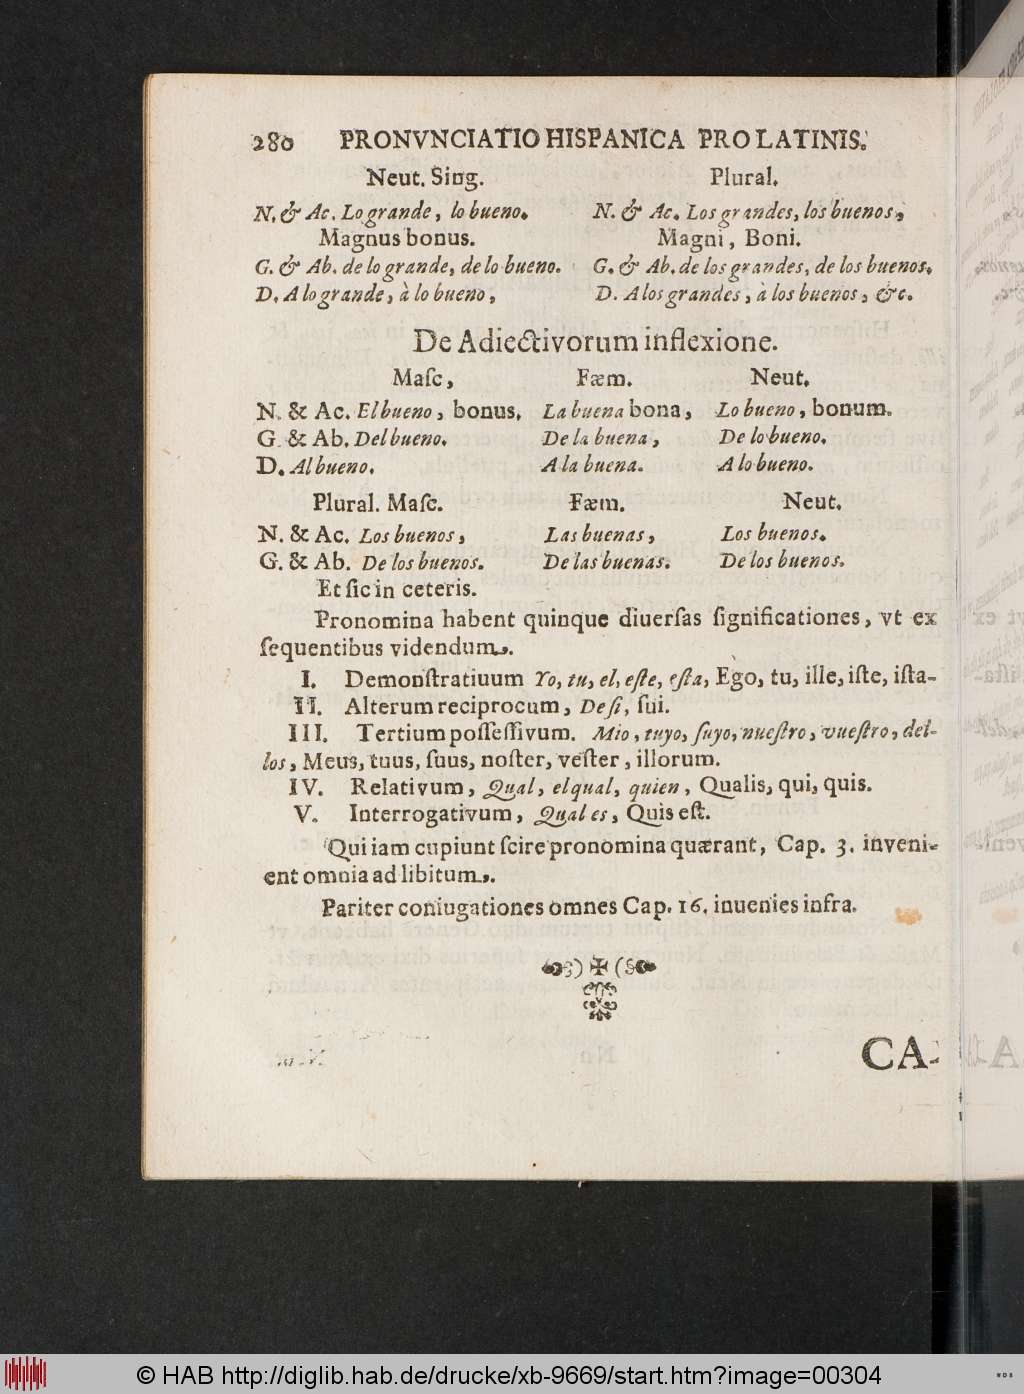 280 PRONVNCIATIO HISPANICA PRO LATINIS.
Neut. Sing. Plural.
N. & Ac. Lo grande, lo bueno. N. & Ac. Los grandes, los buenos,
Magnus bonus. Magni, Boni.
G. & Ab. de lo grande, de lo bueno. G. & Ab. de los grandes, de los buenos.
D. A lo grande, à lo bueno, D. A los grandes, à los buenos, &c.
De Adiectivorum inflexione.
Maſc, Fæm. Neut.
N. & Ac. El bueno, bonus. La buena bona, Lo bueno, bonum.
G. & Ab. Del bueno. De la buena, De lo bueno.
D. Al bueno. A la buena. A lo bueno.
Plural. Maſc. Fæm. Neut.
N. & Ac. Los buenos, Las buenas, Los buenos.
G. & Ab. De los buenos. De las buenas. De los buenos.
Et ſic in ceteris.
Pronomina habent quinque diuerſas ſignificationes, vt ex
ſequentibus videndum.
I. Demonſtratiuum Yo, tu, el, eſte, eſta, Ego, tu, ille, iſte, iſta-
II. Alterum reciprocum, De ſi, ſui.
III. Tertium poſſeſſivum. Mio, tuyo, ſuyo, nueſtro, vueſtro, del-
los, Meus, tuus, ſuus, noſter, veſter, illorum.
IV. Relativum, Qual, el qual, quien, Qualis, qui, quis.
V. Interrogativum, Qual es, Quis eſt.
Qui iam cupiunt ſcire pronomina quærant, Cap. 3. inveni-
ent omnia ad libitum.
Pariter coniugationes omnes Cap. 16. inuenies infra.
CA-
© HAB http://diglib.hab.de/drucke/xb-9669/start.htm?image=00304